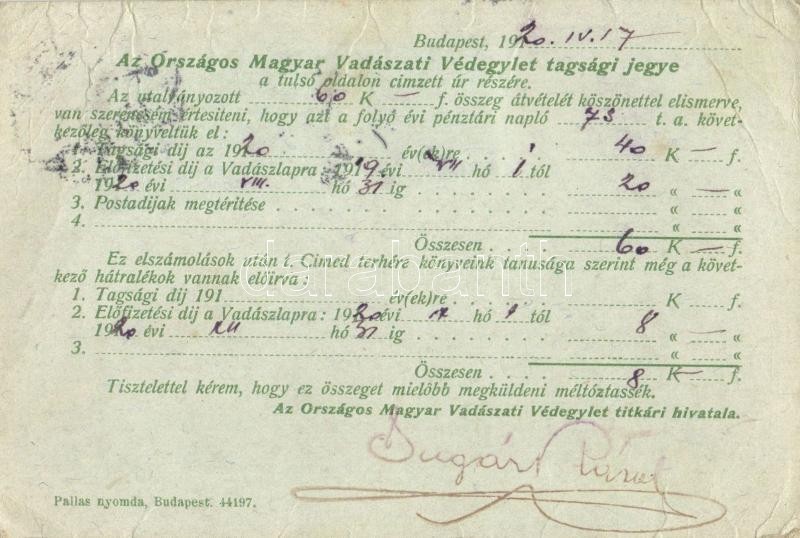 Budapest, 1920. IV. 17
Az Országos Magyar Vadászati Védegylet tagsági jegye
a tulsó oldalon cimzett úr részére.
Az utalványozott 60 K — f. összeg átvételét köszönettel elismerve,
van szerencsém értesiteni, hogy azt a folyó évi pénztári napló 73 t. a. követ-
kezőleg könyveltük el:
1. Tagsági dij az 1920 év(ek)re 40 K — f.
2. Előfizetési dij a Vadászlapra: 1919 évi VII hó 1 tól
1920 évi VIII. hó 31 ig 20 « — «
3. Postadijak megtéritése « «
4. « «
Összesen 60 K — f.
Ez elszámolások után t. Cimed terhére könyveink tanusága szerint még a követ-
kező hátralékok vannak előirva:
1. Tagsági dij 191 év(ek)re K f.
2. Előfizetési dij a Vadászlapra: 1920 évi hó 1 tól
1920 évi XII hó 31 ig 8 « — «
3. « «
Összesen 8 K — f.
Tisztelettel kérem, hogy ez összeget mielőbb megküldeni méltóztassék.
Az Országos Magyar Vadászati Védegylet titkári hivatala.
Pallas nyomda, Budapest. 44197.
darabanth